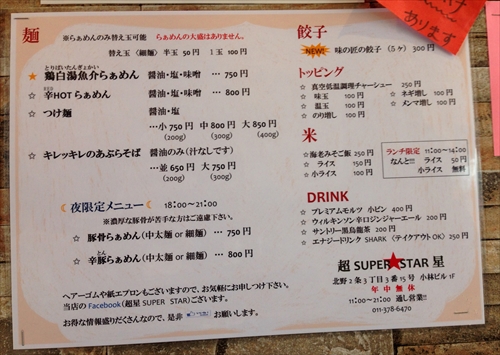 麺
※らぁめんのみ替え玉可能 らぁめんの大盛はありません。
替え玉〈細麺〉半玉 50円 1玉 100円
とりぱいたんぎょかい
★ 鶏白湯魚介らぁめん 醤油・塩・味噌 … 750円
☆ 辛HOTらぁめん 醤油・塩・味噌 … 800円
☆ つけ麺 醤油・塩
…小 750円 中 800円 大 850円
(200g) (300g) (400g)
☆ キレッキレのあぶらそば 醤油のみ(汁なしです)
…並 650円 大 750円
(200g) (300g)
夜限定メニュー 18:00〜21:00
※濃厚な豚骨が苦手な方はご遠慮下さい。
☆ 豚骨らぁめん(中太麺 or 細麺) … 750円
とん
☆ 辛豚らぁめん(中太麺 or 細麺) … 800円
ヘアーゴムや紙エプロンもございますので、お気軽にお申しつけ下さい。
当店の Facebook(超星 SUPER STAR)ございます。
お得な情報盛りだくさんなので、是非 お願いします。
餃子
NEW! 味の匠の餃子(5ヶ) 300円
トッピング
☆ 真空低温調理チャーシュー 250円
☆ 味玉 100円 ☆ ネギ増し 100円
☆ 温玉 100円 ☆ メンマ増し 100円
☆ のり増し 100円
米
☆ 海老みそご飯 250円
☆ ライス 150円
☆ 小ライス 100円
ランチ限定 11:00〜14:00
なんと!! ライス 50円
小ライス 無料
DRINK
☆ プレミアムモルツ 小ビン 400円
☆ ウィルキンソン辛口ジンジャーエール 200円
☆ サントリー黒烏龍茶 200円
☆ エナジードリンク SHARK 〈テイクアウトOK〉 250円
超 SUPER★STAR 星
北野2条3丁目3番15号 小林ビル1F
年中無休
11:00〜21:00 通し営業!!
011-378-6470
あります